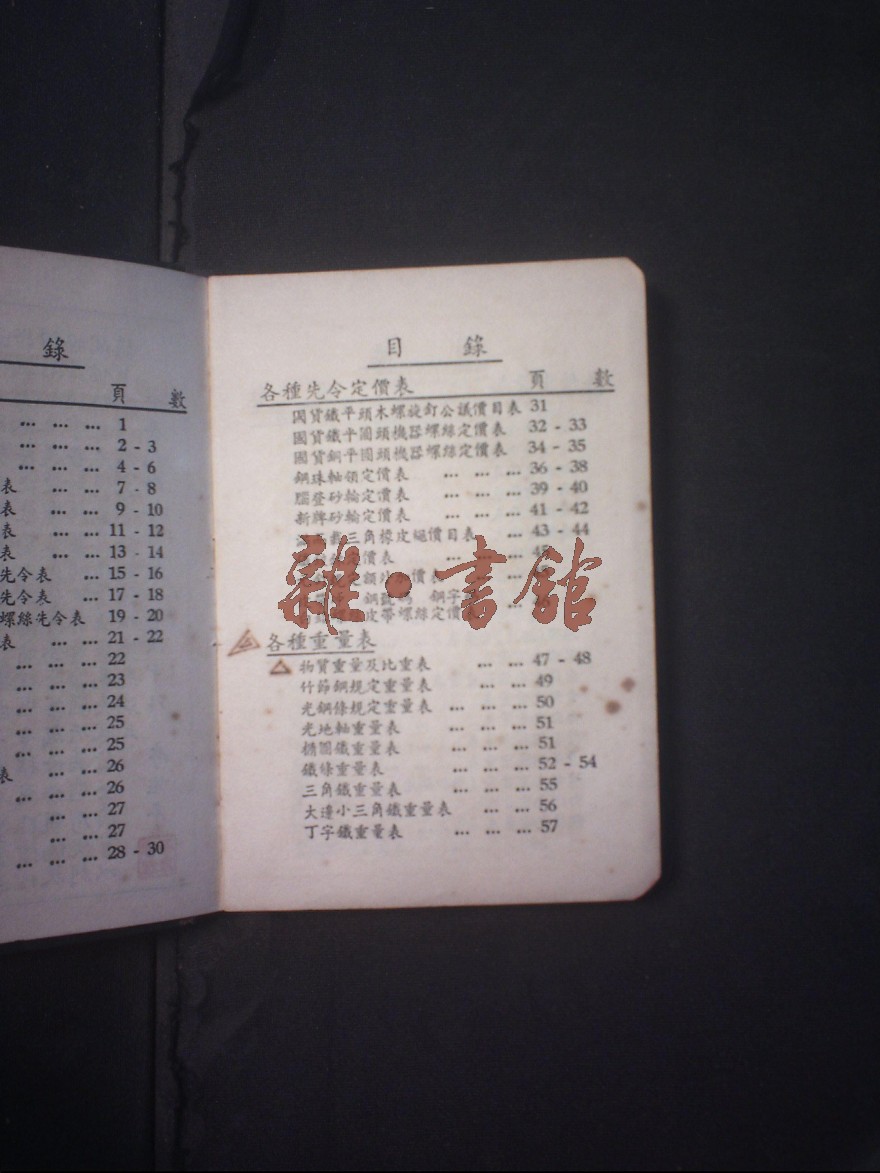 錄
頁 數
... ... ... 1
... ... ... 2 - 3
... ... ... 4 - 6
表 ... ... 7 - 8
表 ... ... 9 - 10
表 ... ... 11 - 12
表 ... ... 13 - 14
先令表 ... 15 - 16
先令表 ... 17 - 18
螺絲先令表 19 - 20
表 ... ... 21 - 22
... ... ... 22
... ... ... 23
... ... ... 24
... ... ... 25
... ... ... 25
表 ... ... ... 26
... ... ... 26
... ... 27
... ... 27
... ... ... 28 - 30
目 錄
各種先令定價表 頁 數
國貨鐵平頭木螺旋釘公議價目表 31
國貨鐵平圓頭機器螺絲定價表 32 - 33
國貨銅平圓頭機器螺絲定價表 34 - 35
鋼珠軸領定價表 ... ... ... 36 - 38
腦登砂輪定價表 ... ... 39 - 40
新牌砂輪定價表 ... ... 41 - 42
三角橡皮繩價目表 ... 43 - 44
價表
價表
鋼字
皮帶螺絲定價
雜·書館
各種重量表
物質重量及比重表 ... ... 47 - 48
竹節鋼規定重量表 ... ... 49
光鋼條規定重量表 ... ... ... 50
光地軸重量表 ... ... ... 51
橢圓鐵重量表 ... ... ... 51
鐵條重量表 ... ... ... 52 - 54
三角鐵重量表 ... ... ... 55
大邊小三角鐵重量表 ... ... 56
丁字鐵重量表 ... ... ... 57